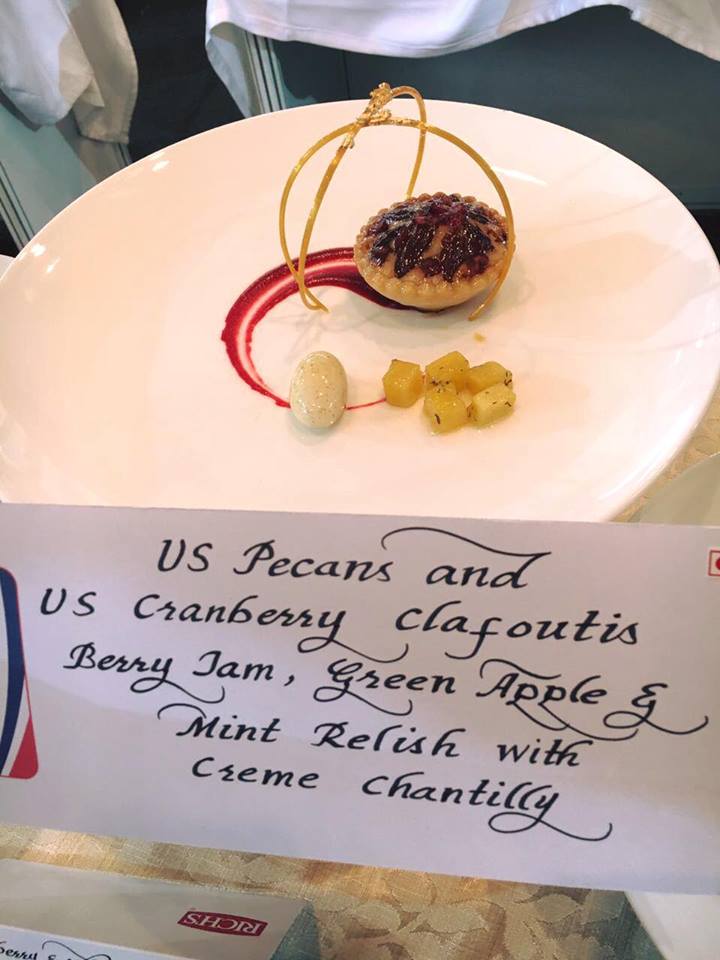 US Pecans and
US Cranberry Clafoutis
Berry Jam, Green Apple &
Mint Relish with
Creme Chantilly
RICH'S